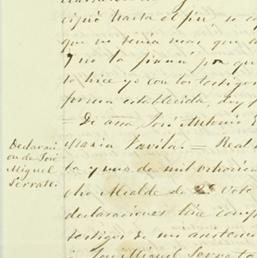 cipió hasta el fin, se
que no tenia mas que
y no la firmó p.r que
lo hice yo con los testigos
forma establecida, doy
= De assa José Antonio
Maria Favila = Real
ta y uno de mil ochocien
cho Alcalde de 2.º voto
declaraciones hice comp
testigos de mi asistencia
José Miguel Serrato
Declaraci
on de José
Miguel
Serrate.